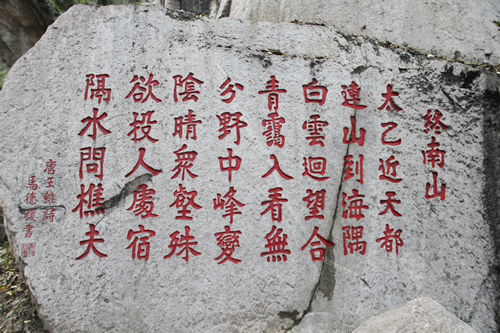 終南山
太乙近天都
連山到海隅
白雲迴望合
青靄入看無
分野中峰變
陰晴眾壑殊
欲投人處宿
隔水問樵夫
唐王維詩